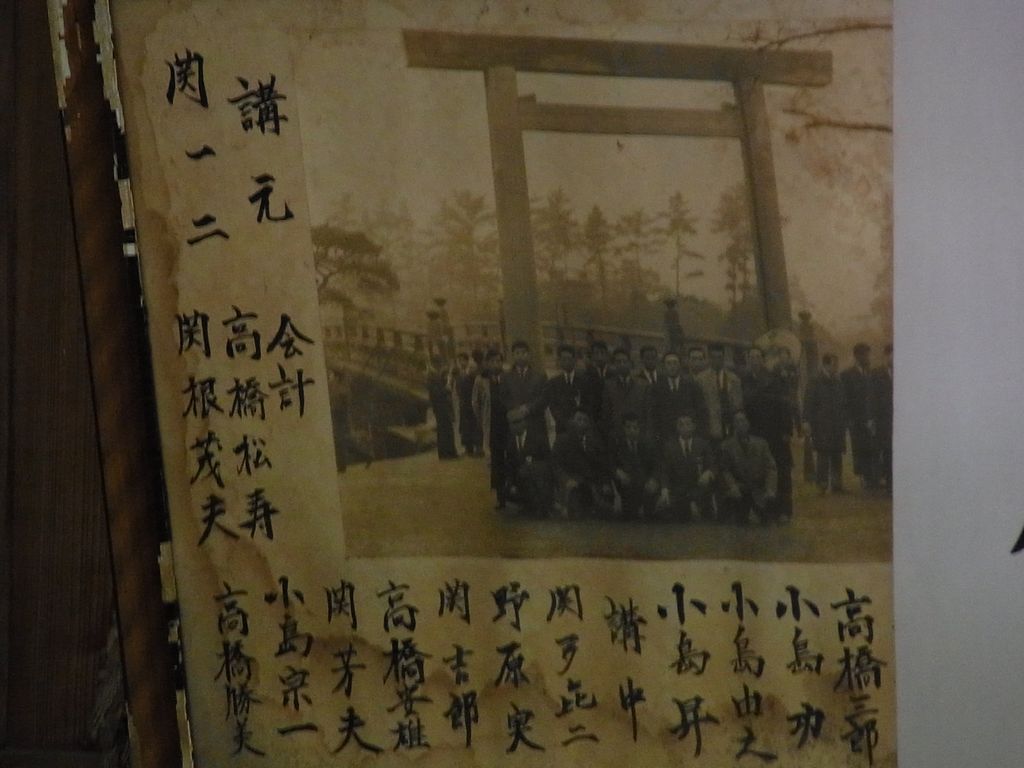 高橋三郎
小島功
小島由之
小島昇
講中
関弥㐂二
野原実
関吉郎
高橋安雄
関芳夫
小島宗一
高橋勝美
会計
高橋松寿
関根茂夫
講元
関一二